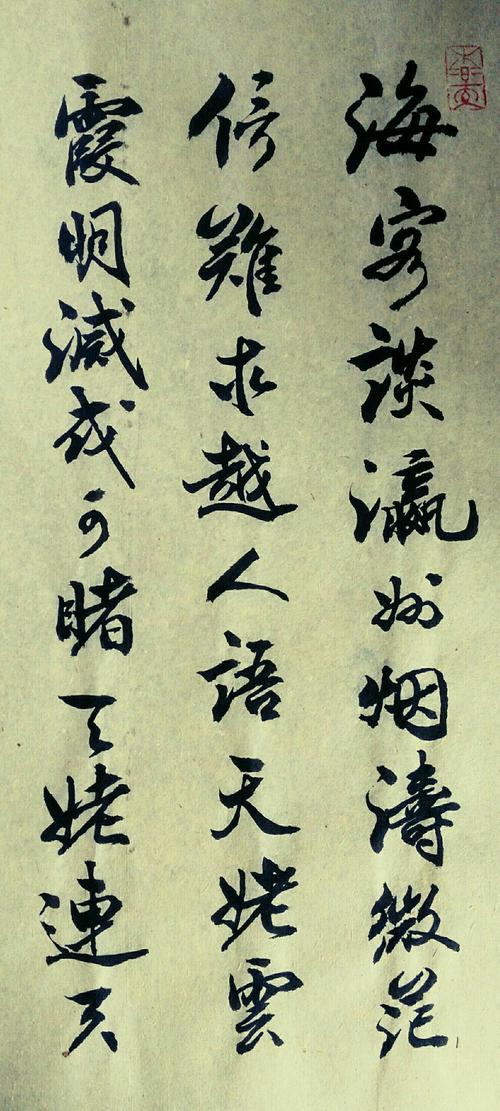 海客談瀛州烟濤微茫
信難求越人語天姥雲
霞明滅或可睹天姥連天